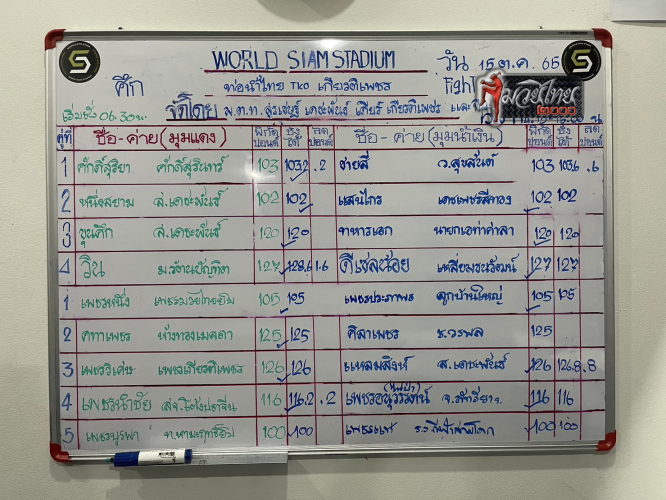 WORLD SIAM STADIUM วัน 15 ต.ค. 65
ศึก ท่อน้ำไทย TKO เกียรติเพชร Fight
เริ่มชั่ง 06.30 น. จัดโดย เดชะพันธ์ เกียรติเพชร และ
มวยไทย 2000
คู่ที่ ชื่อ-ค่าย (มุมแดง) พิกัด ปอนด์ ชั่งได้ ลด ปอนด์ ชื่อ-ค่าย (มุมน้ำเงิน) พิกัด ปอนด์ ชั่งได้ ลด ปอนด์
1 ศักดิ์สุริยา ศักดิ์สุรินทร์ 103 103.2 .2 จ่ายสี ว.สุขสันต์ 103 103.6 .6
2 หนึ่งสยาม ส.เดชะพันธ์ 102 102 แสนไกร เดชเพชรสีทอง 102 102
3 ขุนศึก ส.เดชะพันธ์ 120 120 ทหารเอก นายกเอท่าศาลา 120 120
4 วิน 127 128.6 1.6 ดีเซลน้อย เหลี่ยมธนวัฒน์ 127 127
1 เพชรหนึ่ง เพชรมวยไทยยิม 105 105 เพชรประภาพร ลูกบ้านใหญ่ 105 105
2 คทาเพชร ห้างทองเมลดา 125 125 ศิลาเพชร ธ.วรพล 125
3 เพชรวิเศษ เพชรเกียรติเพชร 126 126 แหลมสิงห์ ส.เดชะพันธ์ 126 126.8 .8
4 เพชรนำชัย 116 116.2 .2 116 116
5 เพชรบูรพา 100 100 100 100